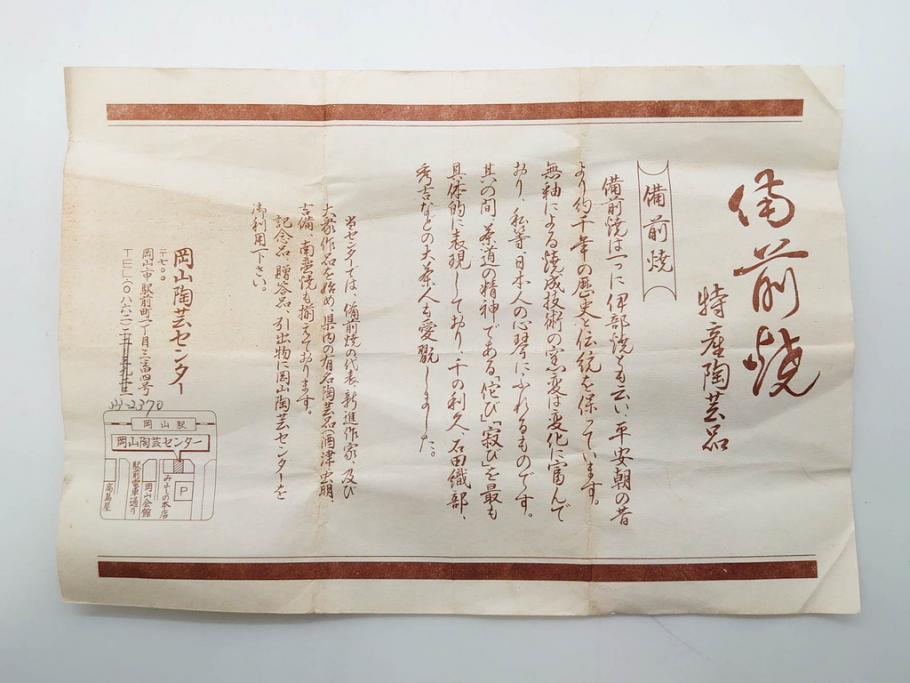 備前焼
特産陶芸品
備前焼
備前焼は一つに伊部焼とも云い、平安朝の昔
より約千年の歴史と伝統を保っています。
無釉による焼成技術の窯変は変化に富んで
おり、私等日本人の心琴にふれるものです。
其の間、茶道の精神である「侘び」「寂び」を最も
具体的に表現しており、千の利久、古田織部、
秀吉などの大茶人も愛翫しました。
当センターでは、備前焼の代表新進作家及び
大家作品を始め、県内の有名陶芸品(酒津虫明、
吉備、南蛮焼も揃えております。
記念品、贈答品、引出物に岡山陶芸センターを
御利用下さい。
岡山陶芸センター
〒七〇〇
岡山市駅前町一丁目三番四号
TEL〇八六二
2370
岡山駅
岡山陶芸センター
高島屋
駅前電車通り
岡山会館
みよしの本店
P